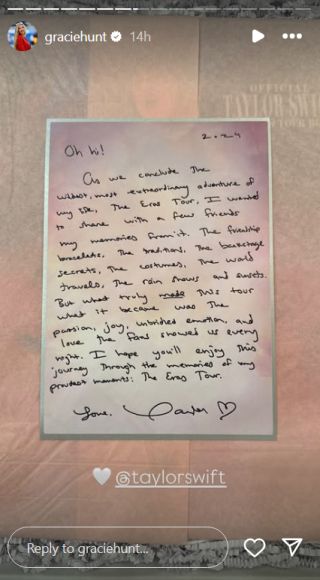 graciehunt 14h
OFFICIAL
TAYLOR SWIF
TOUR BO
2024
Oh hi!
As we conclude the
wildest, most extraordinary adventure of
my life, The Eras Tour, I wanted
to share with a few friends
my memories from it. The friendship
bracelets, the traditions, the backstage
secrets, the costumes, the world
travels, the rain shows and sunsets.
But what truly made this tour
what it became was the
passion, joy, unbridled emotion, and
love the fans showed us every
night. I hope you'll enjoy this
journey through the memories of my
proudest moments: The Eras Tour.
Love, Taylor
@taylorswift
Reply to graciehunt...